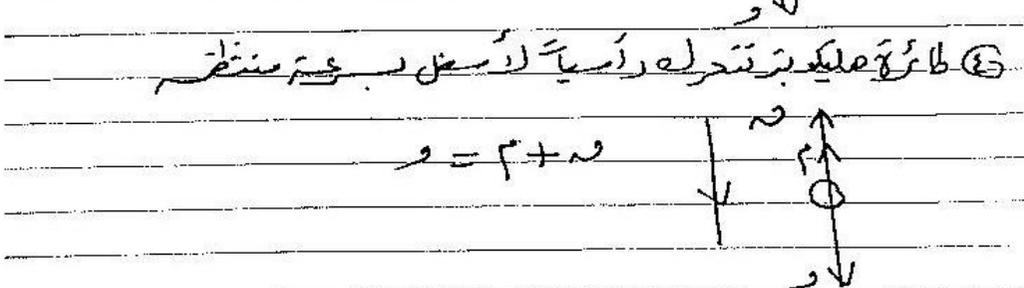 و
④ طائرة هليكوبتر تتحرك رأسياً لأسفل بسرعة منتظمة
ن
م
ن + م = و
و